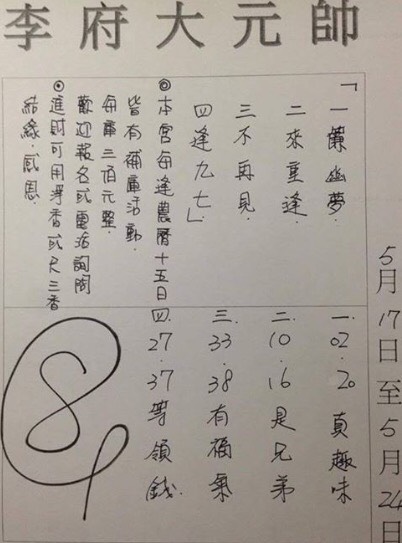 李府大元帥
5月17日至5月24日
「一簾幽夢.
二來重逢.
三不再見.
四逢九七」
◎本宮每逢農曆十五日
皆有補庫活動.
每庫三佰元整.
歡迎報名或電話詢問
◎進財可用淨香或尺三香
結緣.感恩.
一.02.20真趣味
二.10.16是兄弟
三.33.38有福氣
四.27.37等領錢.